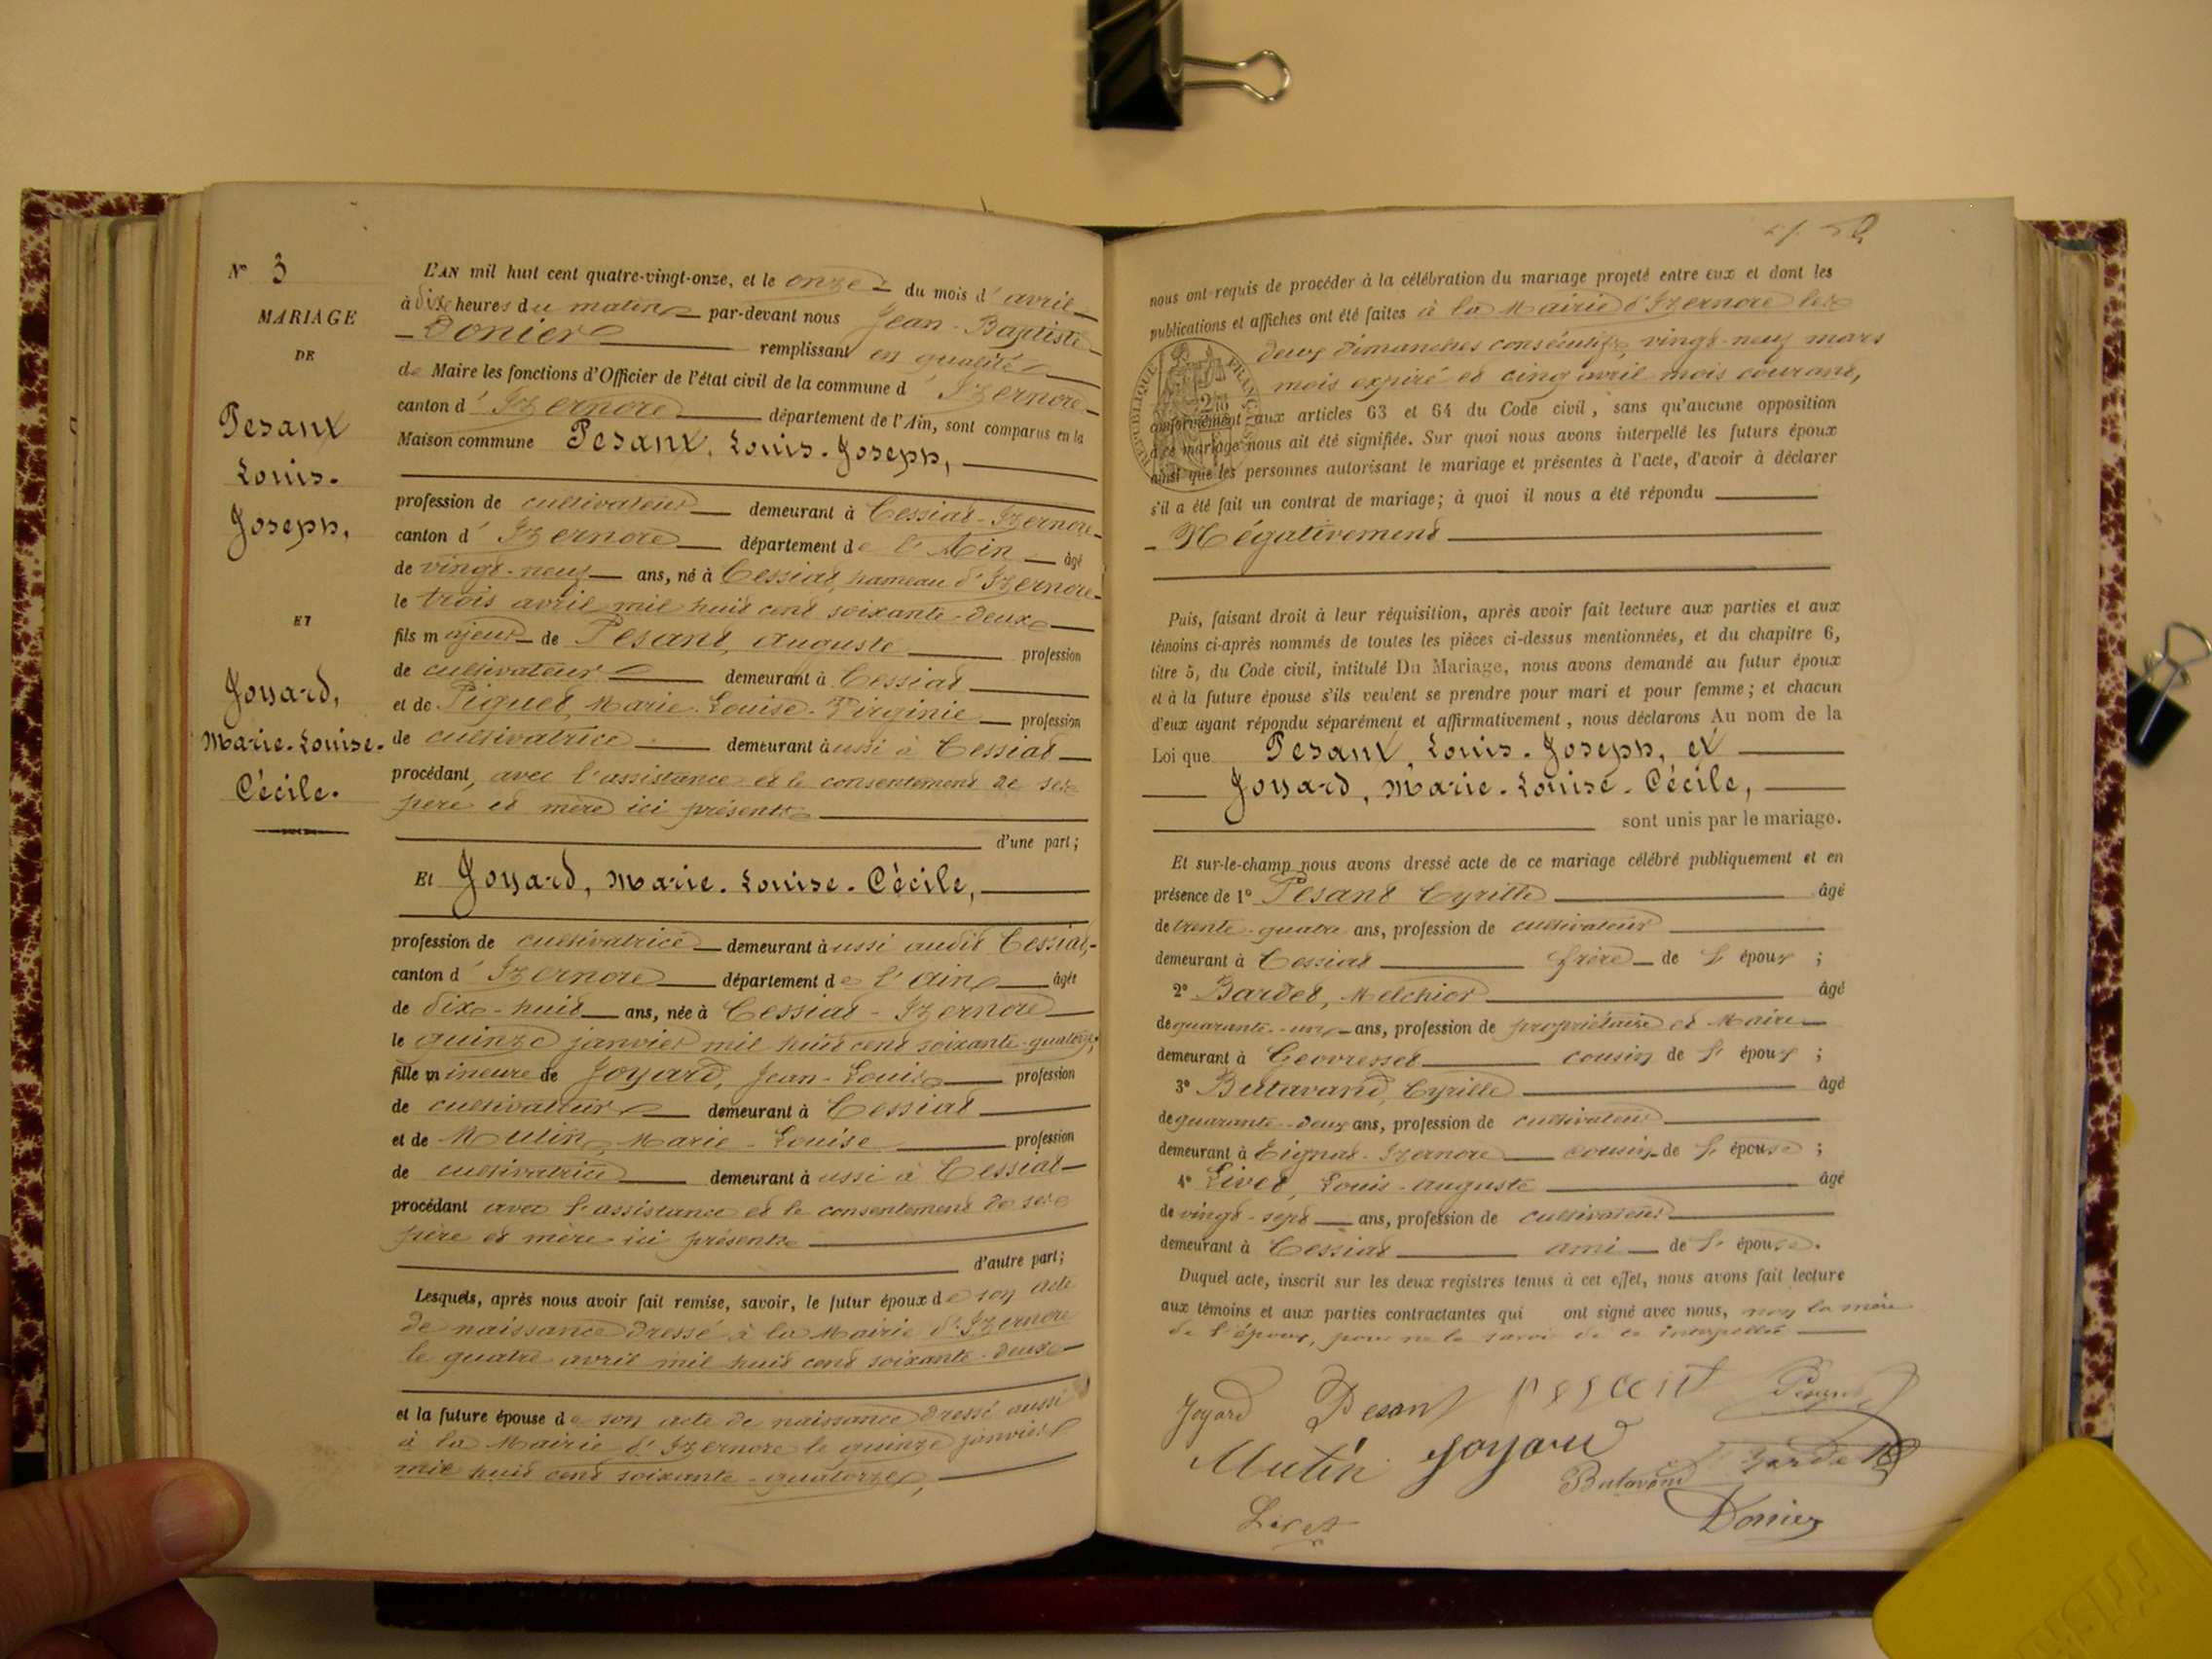 N° 3
MARIAGE
DE
Pesant
Louis-
Joseph,
ET
Joyard,
Marie-Louise-
Cécile.
L'AN mil huit cent quatre-vingt-onze, et le onze du mois d'avril
à dix heures du matin par-devant nous Jean-Baptiste
Donier remplissant en qualité
de Maire les fonctions d'Officier de l'état civil de la commune d'Izernore
canton d'Izernore département de l'Ain, sont comparus en la
Maison commune Pesant, Louis-Joseph,
profession de cultivateur demeurant à Cessiat-Izernore
canton d'Izernore département de l'Ain âgé
de vingt-neuf ans, né à Cessiat, hameau d'Izernore
le trois avril mil huit cent soixante-deux
fils majeur de Pesant, Auguste profession
de cultivateur demeurant à Cessiat
et de Piquet, Marie-Louise-Virginie profession
de cultivatrice demeurant aussi à Cessiat
procédant, avec l'assistance et le consentement de ses
père et mère ici présents
d'une part;
Et Joyard, Marie-Louise-Cécile,
profession de cultivatrice demeurant aussi audit Cessiat,
canton d'Izernore département de l'Ain âgée
de dix-huit ans, née à Cessiat-Izernore
le quinze janvier mil huit cent soixante-quatorze;
fille mineure de Joyard, Jean-Louis profession
de cultivateur demeurant à Cessiat
et de Mutin, Marie-Louise profession
de cultivatrice demeurant aussi à Cessiat
procédant avec l'assistance et le consentement de ses
père et mère ici présents
d'autre part;
Lesquels, après nous avoir fait remise, savoir, le futur époux de son acte
de naissance dressé à la Mairie d'Izernore
le quatre avril mil huit cent soixante-deux
et la future épouse de son acte de naissance dressé aussi
à la Mairie d'Izernore le quinze janvier
mil huit cent soixante-quatorze,
nous ont requis de procéder à la célébration du mariage projeté entre eux et dont les
publications et affiches ont été faites à la Mairie d'Izernore les
deux dimanches consécutifs, vingt-neuf mars
mois expiré et cinq avril mois courant,
conformément aux articles 63 et 64 du Code civil, sans qu'aucune opposition
à ce mariage nous ait été signifiée. Sur quoi nous avons interpellé les futurs époux
ainsi que les personnes autorisant le mariage et présentes à l'acte, d'avoir à déclarer
s'il a été fait un contrat de mariage; à quoi il nous a été répondu
Négativement
Puis, faisant droit à leur réquisition, après avoir fait lecture aux parties et aux
témoins ci-après nommés de toutes les pièces ci-dessus mentionnées, et du chapitre 6,
titre 5, du Code civil, intitulé Du Mariage, nous avons demandé au futur époux
et à la future épouse s'ils veulent se prendre pour mari et pour femme; et chacun
d'eux ayant répondu séparément et affirmativement, nous déclarons Au nom de la
Loi que Pesant, Louis-Joseph, et
Joyard, Marie-Louise-Cécile,
sont unis par le mariage.
Et sur-le-champ nous avons dressé acte de ce mariage célébré publiquement et en
présence de 1° Pesant Cyrille âgé
de trente-quatre ans, profession de cultivateur
demeurant à Cessiat frère de l'époux ;
2° Bardet, Melchior âgé
de quarante-un ans, profession de propriétaire et Maire
demeurant à Geovresset cousin de l'époux ;
3° Butavand, Cyrille âgé
de quarante-deux ans, profession de cultivateur
demeurant à Tignat-Izernore cousin de l'épouse ;
4° Livet, Louis-Auguste âgé
de vingt-sept ans, profession de cultivateur
demeurant à Cessiat ami de l'épouse.
Duquel acte, inscrit sur les deux registres tenus à cet effet, nous avons fait lecture
aux témoins et aux parties contractantes qui ont signé avec nous, non la mère
de l'époux, pour ne le savoir de ce interpellée
Joyard Pesant Pesant Pesant
Mutin Joyard Butavand Bardet
Livet Donier
RÉPUBLIQUE FRANÇAISE